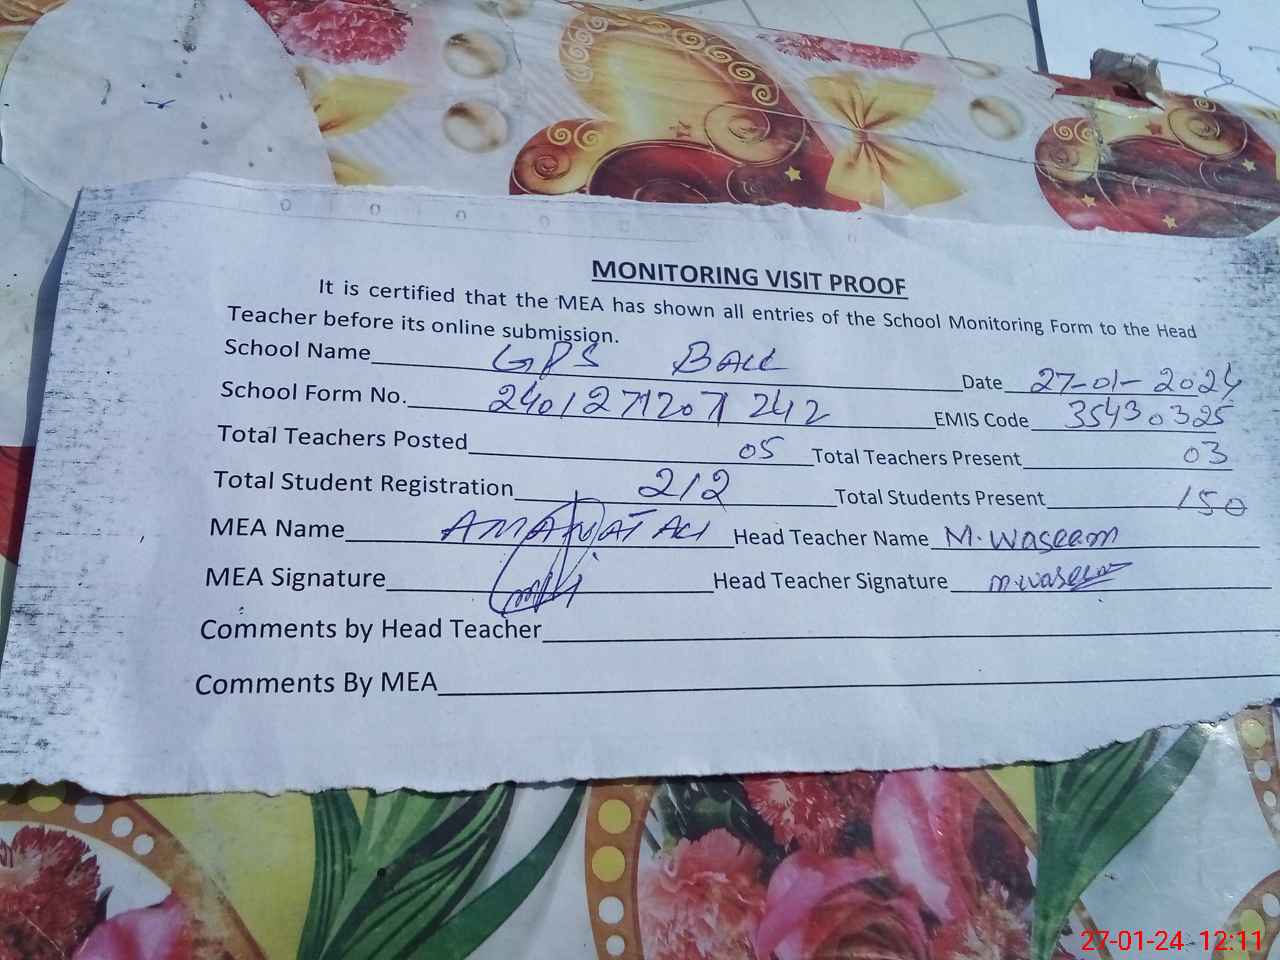 MONITORING VISIT PROOF
It is certified that the MEA has shown all entries of the School Monitoring Form to the Head
Teacher before its online submission.
School Name GPS BALL Date 27-01-2024
School Form No. 24012712071242 EMIS Code 35430325
Total Teachers Posted 05 Total Teachers Present 03
Total Student Registration 212 Total Students Present 150
MEA Name AMANAT ALI Head Teacher Name M. Waseem
MEA Signature Head Teacher Signature M. Waseem
Comments by Head Teacher
Comments By MEA
27-01-24 12:11